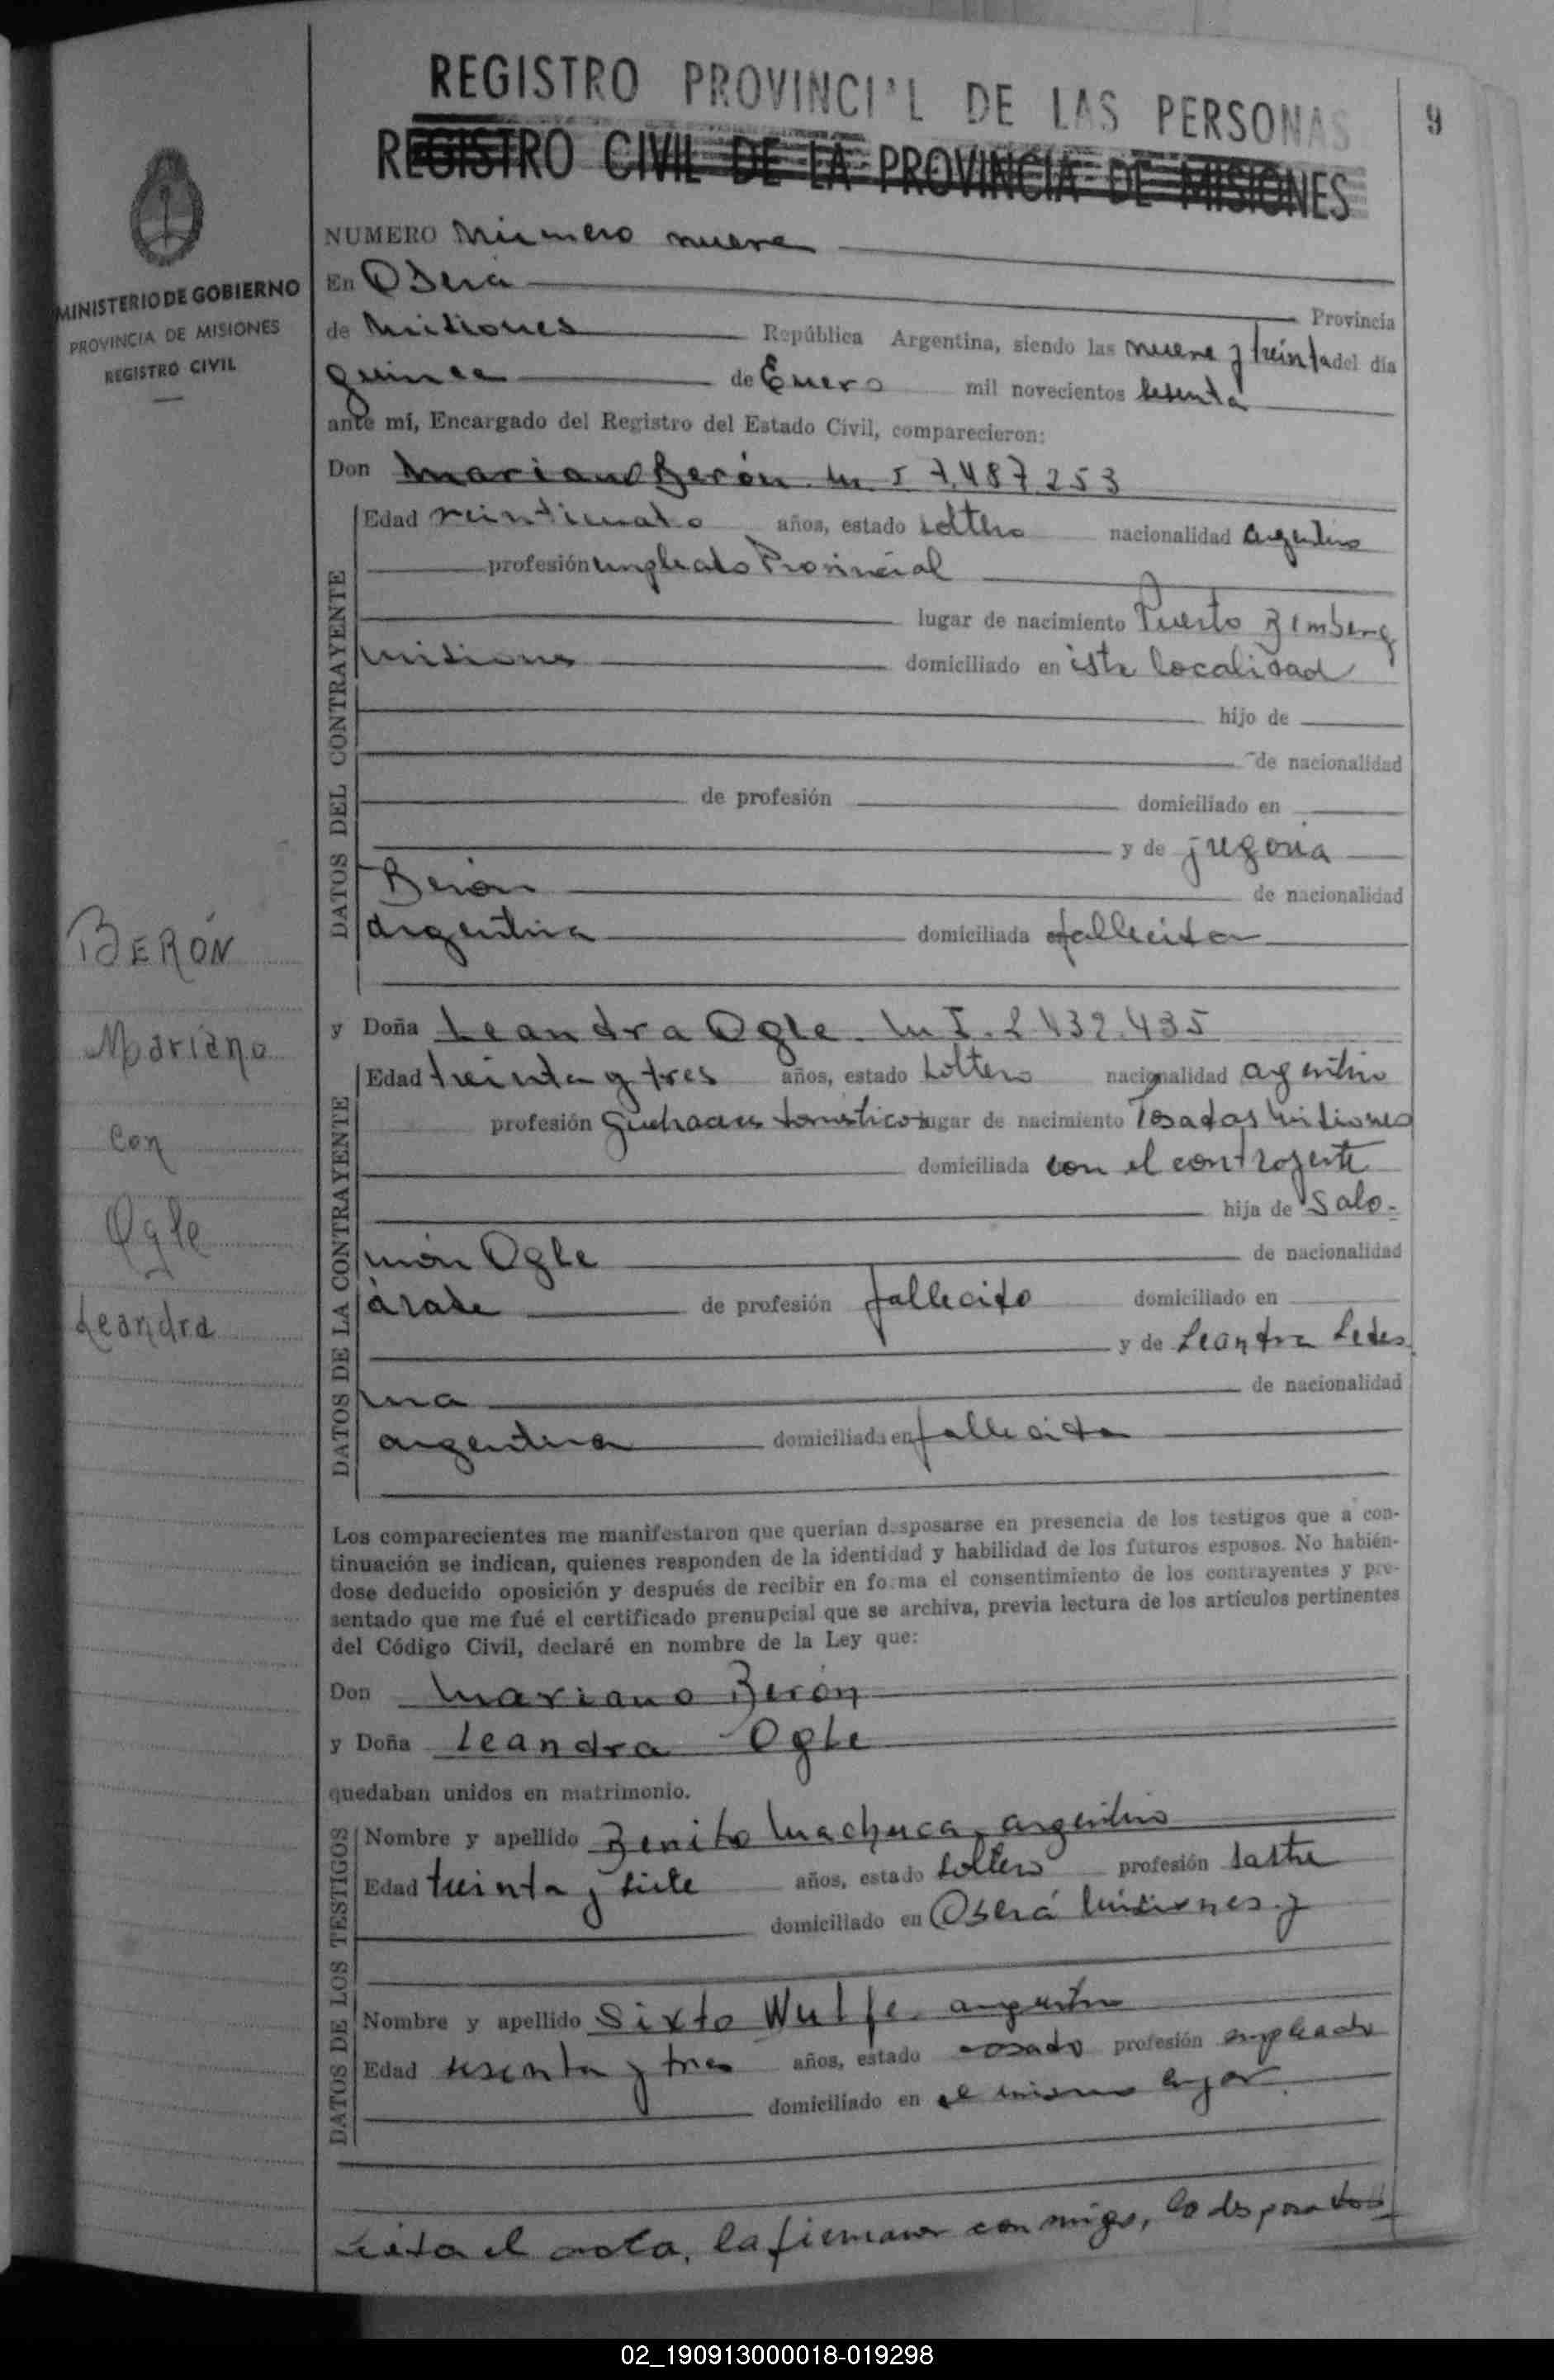 REGISTRO PROVINCI'L DE LAS PERSONAS
9
REGISTRO CIVIL DE LA PROVINCIA DE MISIONES
MINISTERIO DE GOBIERNO
PROVINCIA DE MISIONES
REGISTRO CIVIL
NUMERO Número nueve
En Oberá Provincia
de Misiones República Argentina, siendo las nueve y treinta del día
quince de Enero mil novecientos sesenta
ante mí, Encargado del Registro del Estado Civil, comparecieron:
Don Mariano Berón. M. I 7.487.253
DATOS DEL CONTRAYENTE
Edad veinticuatro años, estado soltero nacionalidad argentino
profesión empleado Provincial
lugar de nacimiento Puerto Bemberg
Misiones domiciliado en esta localidad
hijo de
de nacionalidad
de profesión domiciliado en
y de
Berón de nacionalidad
argentina domiciliada fallecida
BERÓN
Mariano
con
Ogle
Leandra
y Doña Leandra Ogle. M I. 2.432.435
DATOS DE LA CONTRAYENTE
Edad treinta y tres años, estado soltera nacionalidad argentina
profesión Quehaceres domésticos lugar de nacimiento Posadas Misiones
domiciliada con el contrayente
hija de Salo-
món Ogle de nacionalidad
árabe de profesión fallecido domiciliado en
y de Leandra Ledes
ma de nacionalidad
argentina domiciliada en fallecida
Los comparecientes me manifestaron que querían desposarse en presencia de los testigos que a con-
tinuación se indican, quienes responden de la identidad y habilidad de los futuros esposos. No habién-
dose deducido oposición y después de recibir en forma el consentimiento de los contrayentes y pre-
sentado que me fué el certificado prenupcial que se archiva, previa lectura de los artículos pertinentes
del Código Civil, declaré en nombre de la Ley que:
Don Mariano Berón
y Doña Leandra Ogle
quedaban unidos en matrimonio.
DATOS DE LOS TESTIGOS
Nombre y apellido Benito Machuca, argentino
Edad treinta y siete años, estado soltero profesión sastre
domiciliado en Oberá Misiones y
Nombre y apellido Sixto Wulfe argentino
Edad sesenta y tres años, estado casado profesión empleado
domiciliado en el mismo lugar.
Leída el acta, la firman conmigo, los desposados
02_190913000018-019298